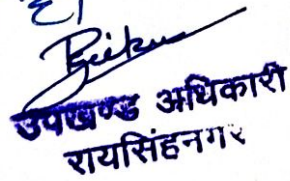 है।
उपखण्ड अधिकारी
रायसिंहनगर